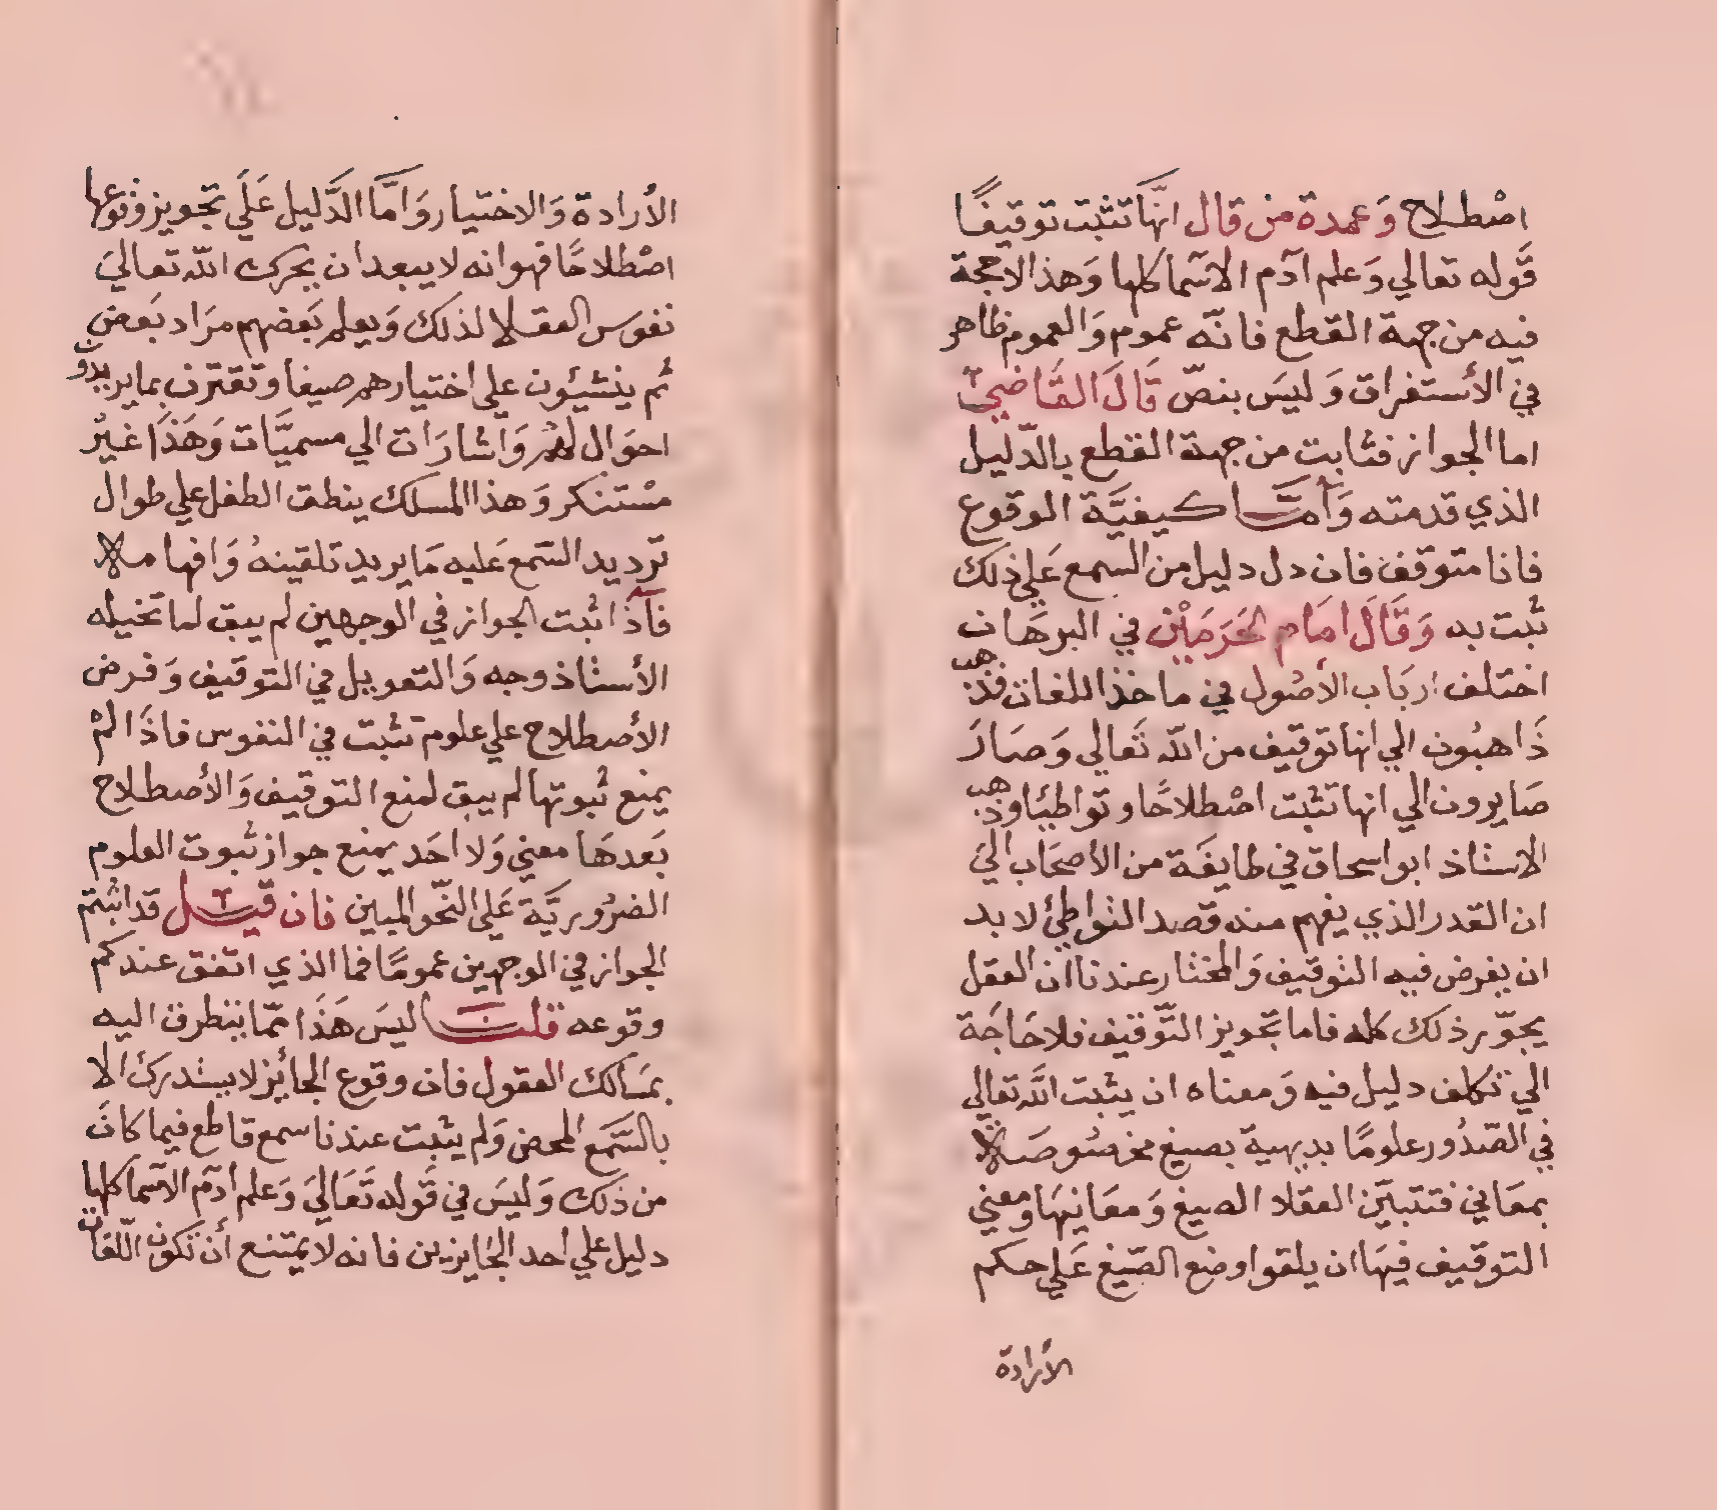 اصْطلاح وَعمدة من قال انّهَا تثبت توقيفًا
قَوله تعالي وَعلم ادَم الاسَما كلها وَهذا لاحجة
فيه من جهة القطع فانّه عموم وَالعموم ظاهر
في الأستغراق وَليسَ بنصّ قَالَ القَاضيْ
اما الجواز فثابت من جهة القطع بالدّليل
الذي قدمته وَأمَّا كيفيَّة الوقوع
فانا متوقف فان دل دليل من السمع عَلي ذلك
ثبت به وَقَالَ امَام الحَرمَيْن في البرهَان
اختلف اربَاب الأصُول في ماخذ اللغات فذهب
ذَاهبُون الي انها توقيف من الله تَعالي وَصَارَ
صَايرون الي انها تثبت اصْطلاحًا وتواطيًا وذهب
الاستاذ ابو اسحاق في طايفَة من الأصحَاب اليَ
ان القدر الذي يفهم منه قصد التواطئ لا بد
ان يفرض فيه التوقيف وَالمختار عندنا ان العقل
يجوّز ذلك كله فاما تجويز التَّوقيف فلا حَاجَة
الي تكلف دليل فيه وَمعناه ان يثبت الله تعَالي
في الصّدُور علومًا بديهية بصيغ مخصُوصَة
بمعَاني فتتبيَّن العقلا الصيغ وَمعَانيهَا ومعني
التوقَيف فيهَا ان يلقوا وضع الصّيغ عَلي حكم
الأرادة
الأرادة وَالاختيار وَامَّا الدَّليل عَلَي تجويز وقوعها
اصْطلاحًا فهو انه لا يبعد ان يحرك الله تعاليَ
نفوس العقلا لذلك وَيعلم بَعضهم مرَاد بَعض
ثم ينشئون علي اختيارهم صيغا وتقترن بما يريدون
احوَال لهم وَاشارَات الي مسميَّات وَهَذَا غيْر
مسْتنكر وَهذا المسلك ينطق الطفل علي طوال
ترديد السّمع عَليه مَا يريد تلقينهُ وَافهامه
فاذَا ثبت الجواز في الوجهين لم يبق لما تخيله
الأستاذ وجه وَالتعويل في التوقَيف وَفرض
الأصطلاح علي علوم تثبت في النفوس فاذَا لمْ
يمنع ثبوتها لم يبق لمنع التوقيف وَالأصطلاح
بَعدهَا معني وَلا احَد يمنع جواز ثبوت العلوم
الضرُوريَّة عَلي النّحو المبين فان قيل قد اثبتم
الجواز في الوجهين عمومًا فما الذي اتفق عندكم
وقوعه قلنا ليسَ هَذَا ممّا يتطرق اليه
بمسَالك العقول فان وقوع الجائز لا يستدرك الا
بالسّمع المحض وَلم يثبت عندنا سمع قاطع فيما كانَ
من ذلك وَليسَ في قَوله تَعَاليَ وَعلم ادَم الاسَما كلها
دليل علي احد الجَايزين فانه لا يمتنع أن تكون اللّغات